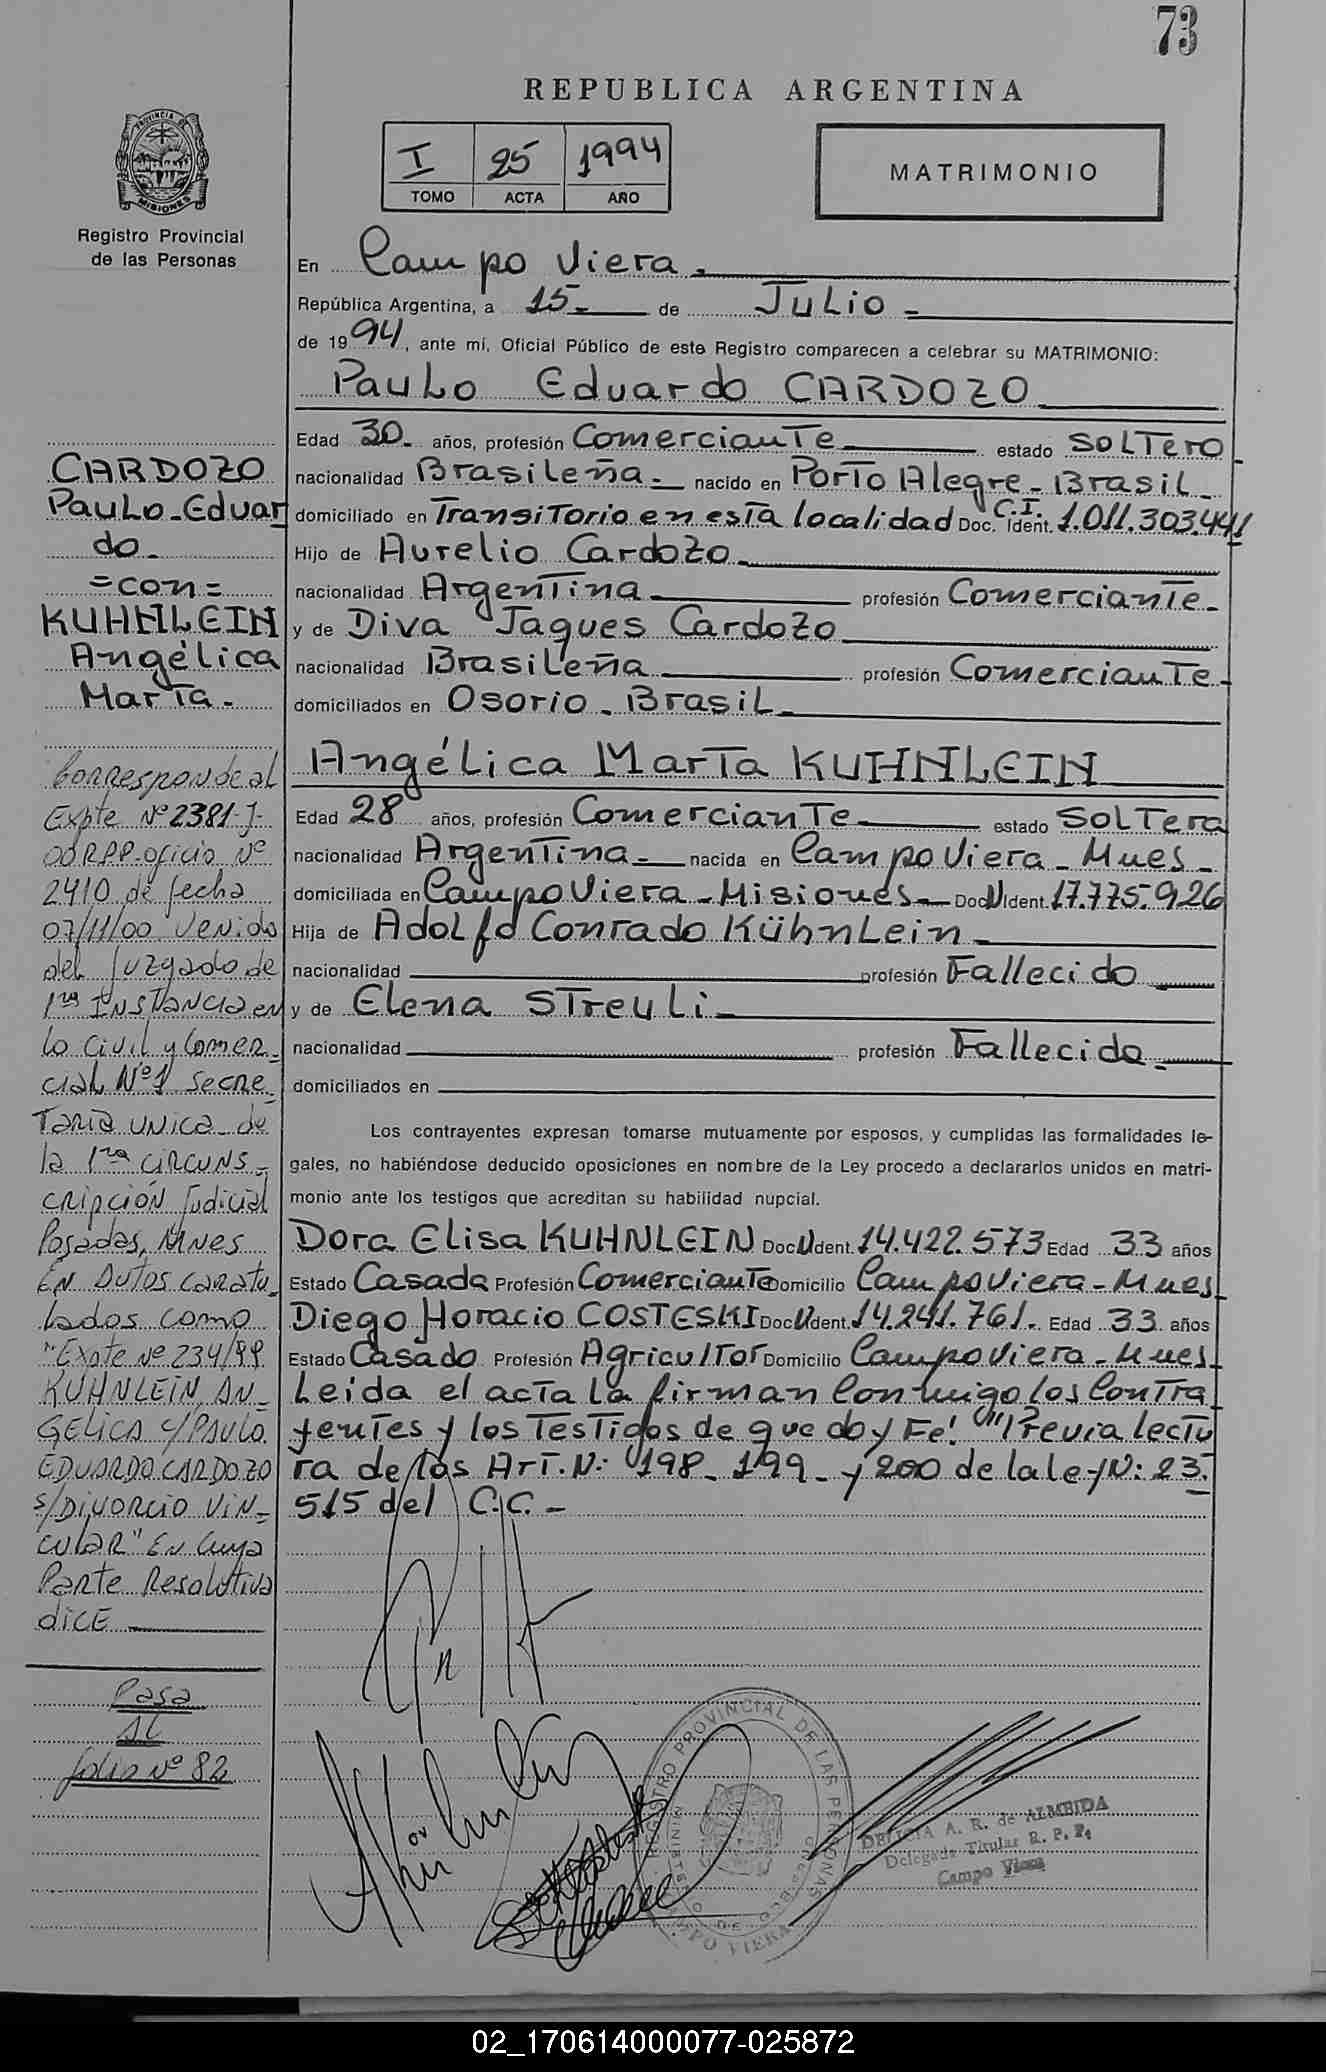 73
REPUBLICA ARGENTINA
I 25 1994
TOMO ACTA AÑO
MATRIMONIO
PROVINCIA DE
MISIONES
Registro Provincial
de las Personas
CARDOZO
Paulo Eduar
do.
=con=
KUHNLEIN
Angélica
Marta.
Corresponde al
Expte Nº 2381-J-
00 R.P.P. oficio Nº
2410 de fecha
07/11/00 Venido
del Juzgado de
1ra INSTANCIA en
lo Civil y Comer-
cial Nº1 Secre-
Taria UNICA de
la 1ra CIRCUNS-
cripción Judicial
Posadas, MNes
EN Autos caratu-
lados como
"Expte Nº 234/99
KUHNLEIN, AN-
GELICA c/PAULO
EDUARDO CARDOZO
s/DIVORCIO VIN-
CULAR" EN Cuya
Parte Resolutiva
dice
Pasa
al
folio Nº 82
En Campo Viera.
República Argentina, a 15 de Julio
de 1994, ante mí, Oficial Público de este Registro comparecen a celebrar su MATRIMONIO:
Paulo Eduardo CARDOZO
Edad 30 años, profesión Comerciante estado Soltero
nacionalidad Brasileña nacido en Porto Alegre - Brasil
domiciliado en Transitorio en esta localidad Doc. C.I. Ident. 1.011.303.441
Hijo de Aurelio Cardozo
nacionalidad Argentina profesión Comerciante
y de Diva Jaques Cardozo
nacionalidad Brasileña profesión Comerciante
domiciliados en Osorio - Brasil
Angélica Marta KUHNLEIN
Edad 28 años, profesión Comerciante estado Soltera
nacionalidad Argentina nacida en Campo Viera - Mnes
domiciliada en Campo Viera - Misiones Doc N Ident. 17.775.926
Hija de Adolfo Conrado Kühnlein
nacionalidad profesión Fallecido
y de Elena Streuli
nacionalidad profesión Fallecida
domiciliados en
Los contrayentes expresan tomarse mutuamente por esposos, y cumplidas las formalidades le-
gales, no habiéndose deducido oposiciones en nombre de la Ley procedo a declararlos unidos en matri-
monio ante los testigos que acreditan su habilidad nupcial.
Dora Elisa KUHNLEIN Doc N Ident. 14.422.573 Edad 33 años
Estado Casada Profesión Comerciante Domicilio Campo Viera - Mnes
Diego Horacio COSTESKI Doc N Ident. 14.241.761 Edad 33 años
Estado Casado Profesión Agricultor Domicilio Campo Viera - Mnes
Leida el acta la firman Conmigo los Contra
yentes y los Testigos de que doy Fe! "Previa lectu
ra de los Art. N: 198 - 199 - y 200 de la ley N: 23.
515 del C.C.-
REGISTRO PROVINCIAL DE LAS PERSONAS
MINISTERIO DE GOBIERNO
CAMPO VIERA
DELICIA A. R. de ALMEIDA
Delegada Titular R. P. P.
Campo Viera
02_170614000077-025872